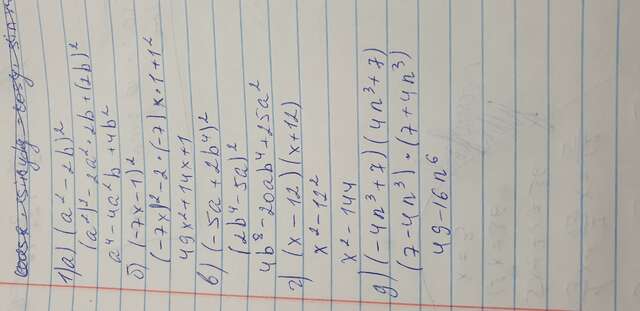 1) а) (a² - 2b)²
(a²)² - 2a² · 2b + (2b)²
a⁴ - 4a²b + 4b²
б) (-7x - 1)²
(-7x)² - 2 · (-7)x · 1 + 1²
49x² + 14x + 1
в) (-5a + 2b⁴)²
(2b⁴ - 5a)²
4b⁸ - 20ab⁴ + 25a²
г) (x - 12)(x + 12)
x² - 12²
x² - 144
д) (-4n³ + 7)(4n³ + 7)
(7 - 4n³) · (7 + 4n³)
49 - 16n⁶